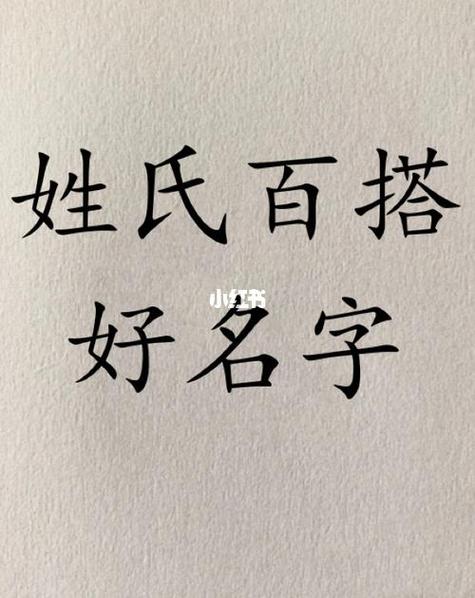 姓氏百搭
小红书
好名字